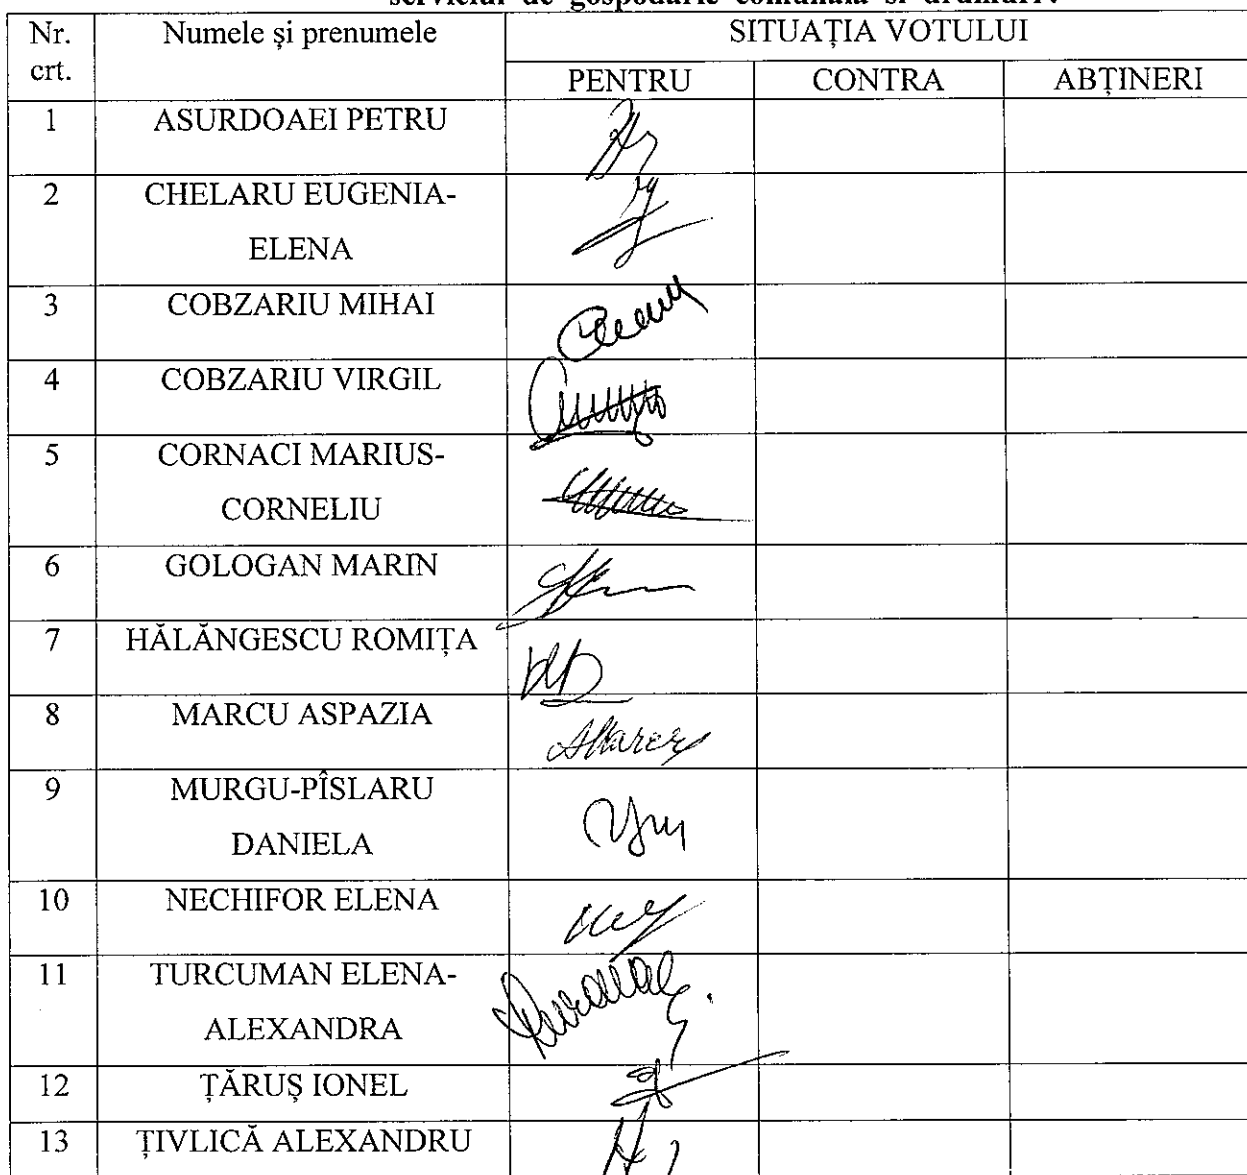 serviciul de gospodarie comunala si drumuri.
Nr. crt. Numele și prenumele SITUAȚIA VOTULUI
PENTRU CONTRA ABȚINERI
1 ASURDOAEI PETRU
2 CHELARU EUGENIA-
ELENA
3 COBZARIU MIHAI
4 COBZARIU VIRGIL
5 CORNACI MARIUS-
CORNELIU
6 GOLOGAN MARIN
7 HĂLĂNGESCU ROMIȚA
8 MARCU ASPAZIA
9 MURGU-PÎSLARU
DANIELA
10 NECHIFOR ELENA
11 TURCUMAN ELENA-
ALEXANDRA
12 ȚĂRUȘ IONEL
13 ȚIVLICĂ ALEXANDRU